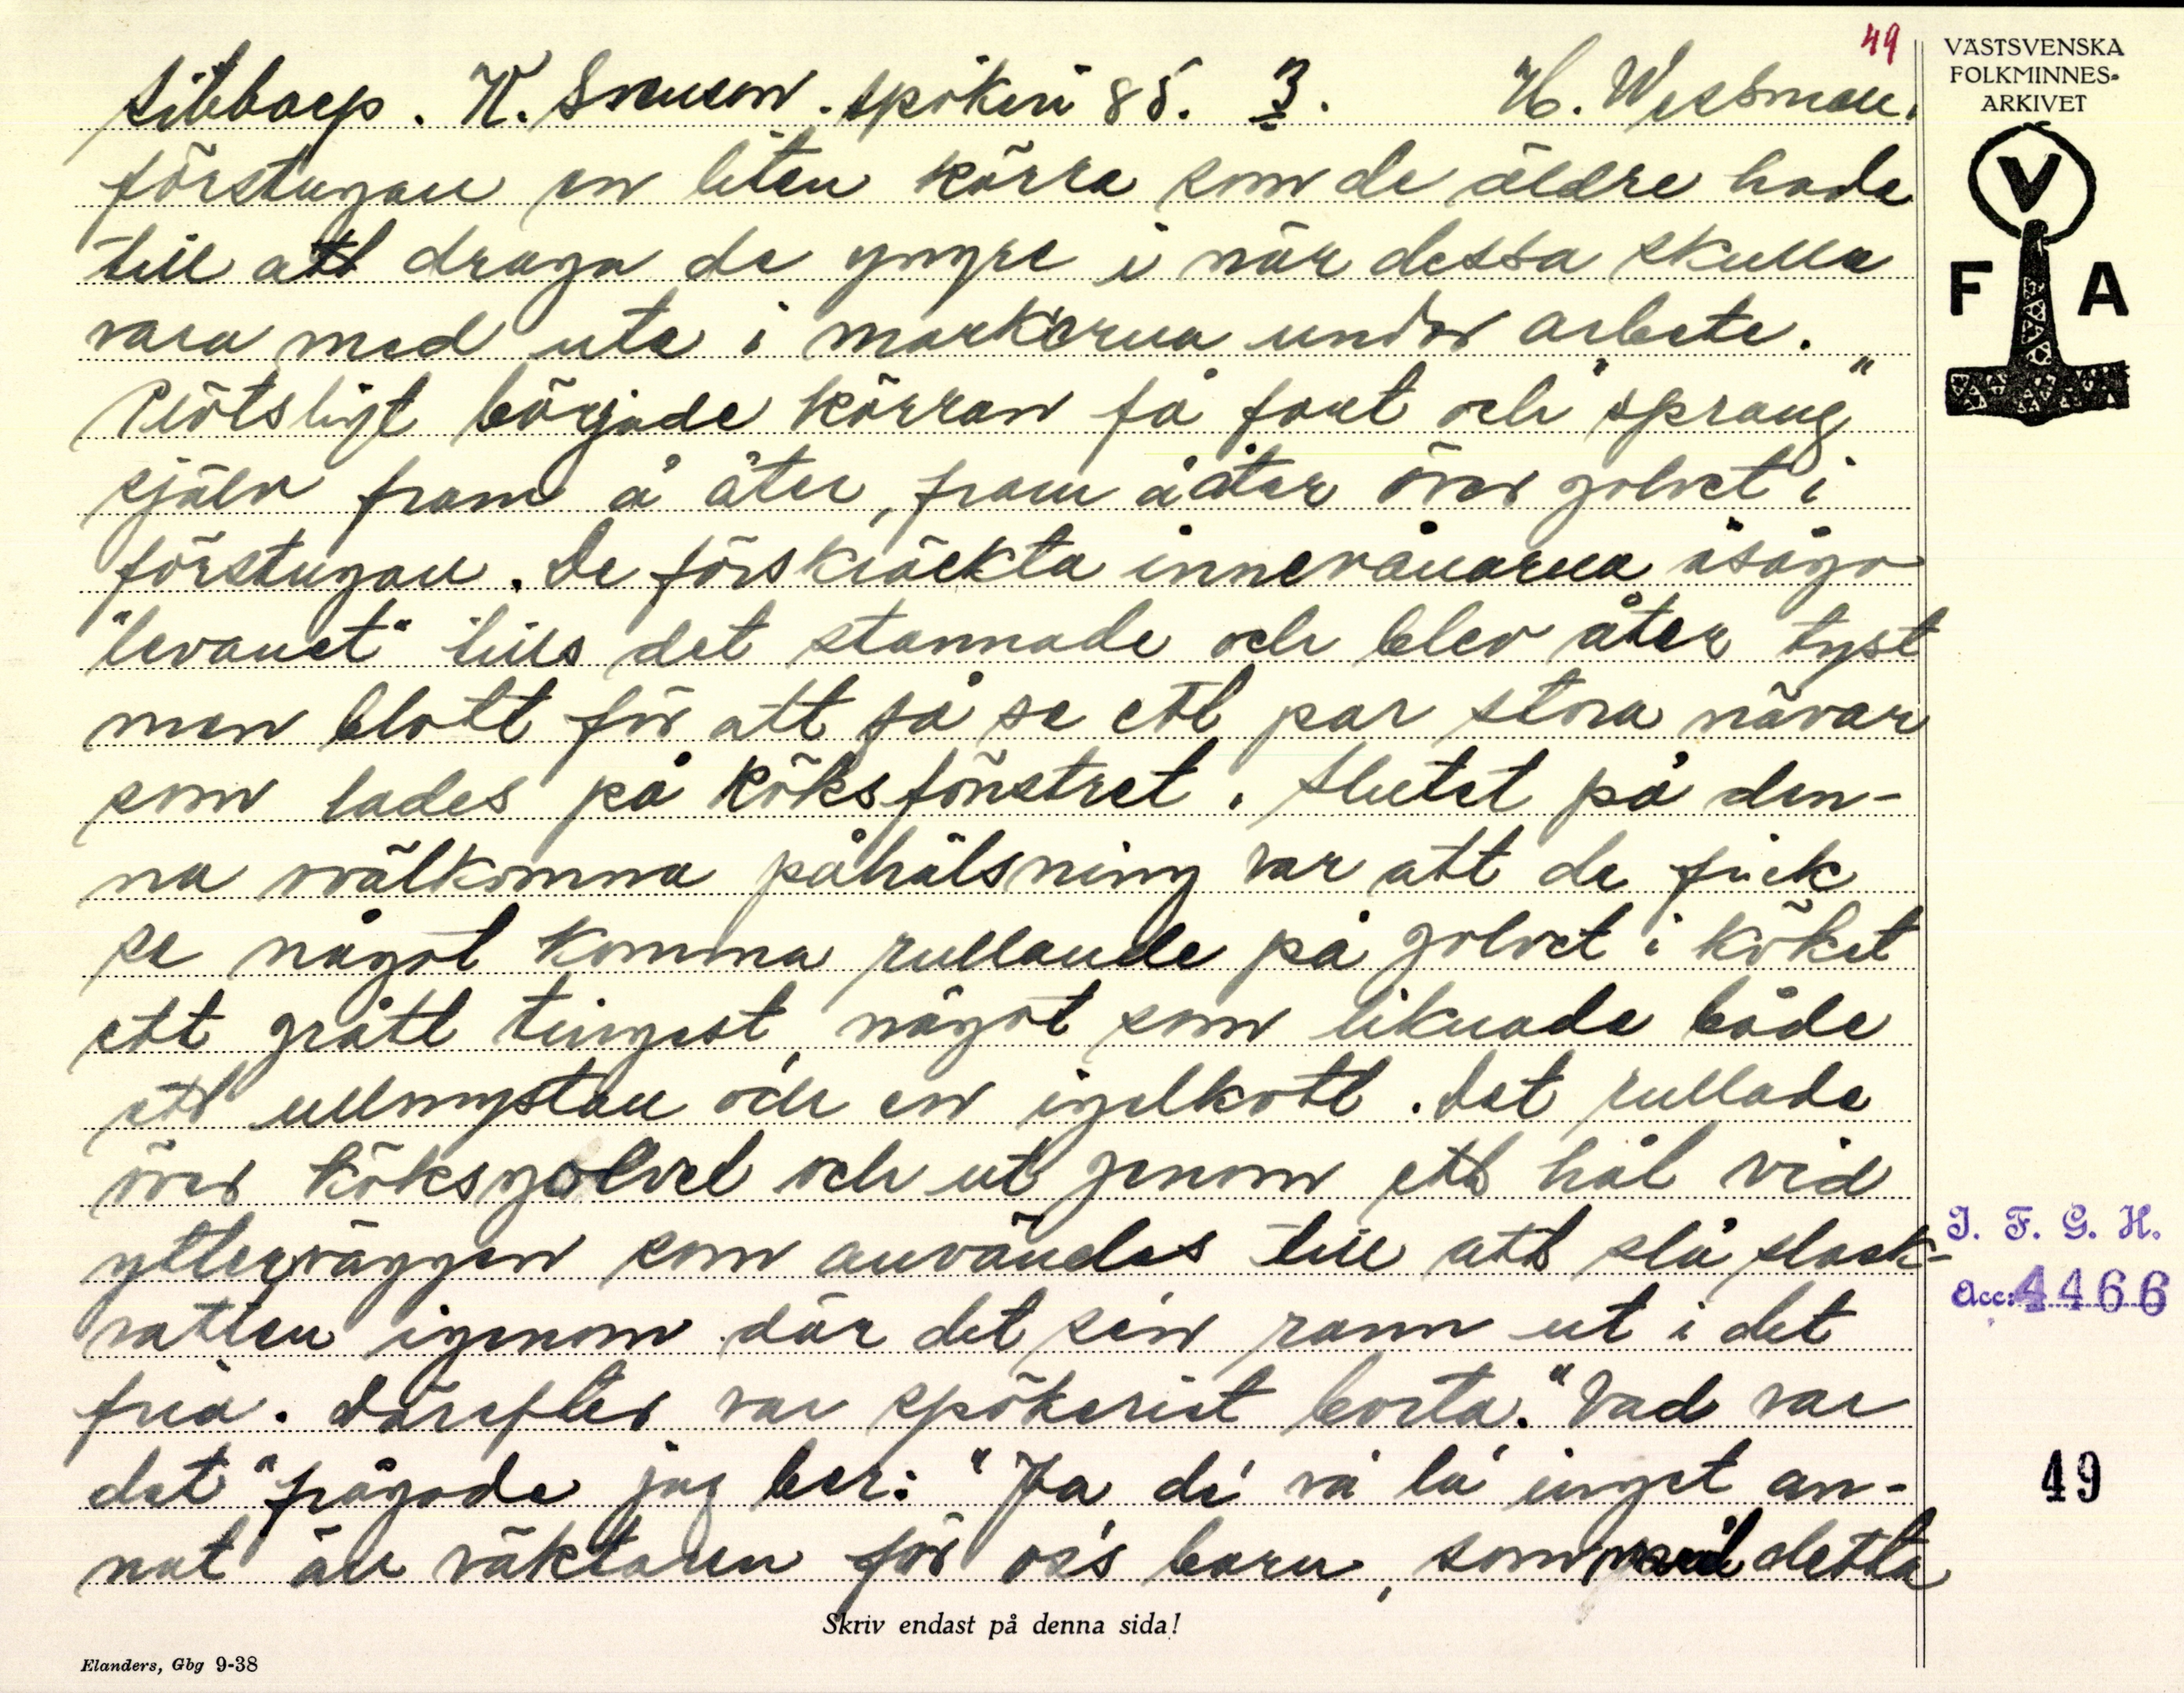 49
VÄSTSVENSKA
FOLKMINNES-
ARKIVET
V
F A
spökeri 85. 3. H. Wessman.
förstugan en liten kärra som de äldre hade
till att draga de yngre i när dessa skulle
vara med ute i markerna under arbete.
Plötsligt började kärran få fart och "sprang"
själv fram å åter, fram å åter över golvet i
förstugan. De förskräckta innevånarna åsågo
"levanet" tills det stannade och blev åter tyst
men blott för att få se ett par stora nävar
som lades på köksfönstret. Slutet på den-
na ovälkomna påhälsning var att de fick
se något komma rullande på golvet i köket
ett grått tingest, något som liknade både
ett ullnystan och en igelkott. Det rullade
över köksgolvet och ut genom ett hål vid
ytterväggen som användes till att slå slask-
vatten igenom där det sen rann ut i det
fria. Därefter var spökeriet borta. "Vad var
det" frågade jag ber: "Ja de' va la' inget an-
nat än väktaren för oss barn, som med detta
Skriv endast på denna sida!
Elanders, Gbg 9-38
I. F. G. H.
Acc: 4466
49